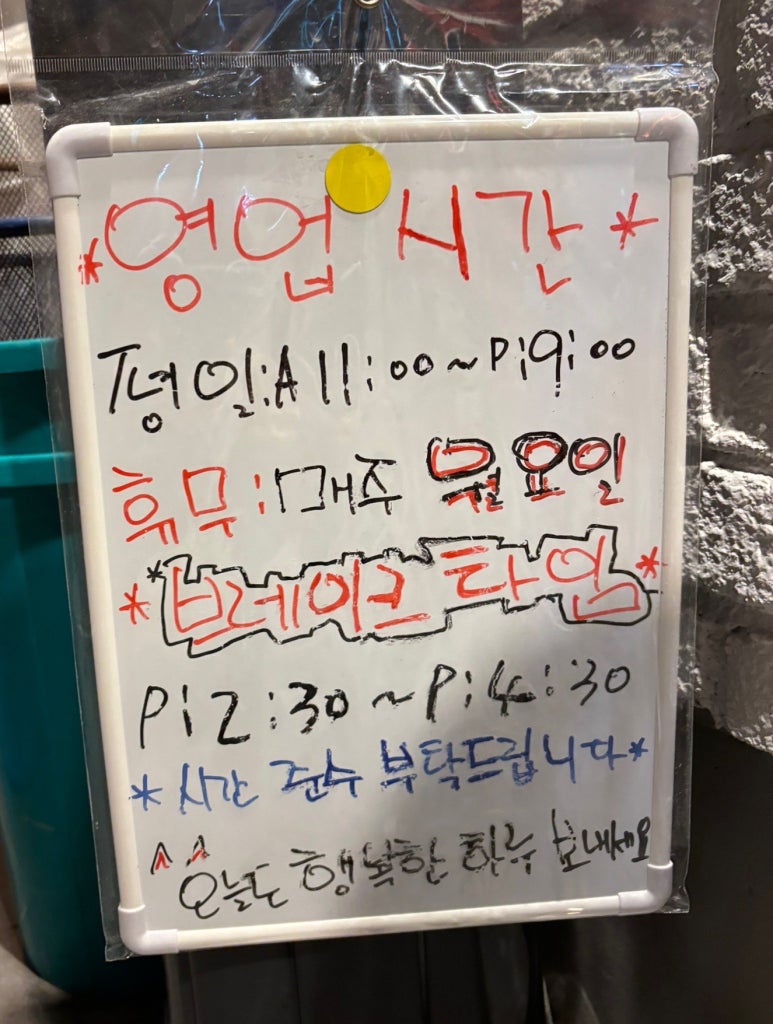 *영업 시간*
평일:A 11:00~P:9:00
휴무:매주 월요일
*브레이크 타임*
P:2:30~P:4:30
*시간 준수 부탁드립니다*
^^ 오늘도 행복한 하루 보내세요